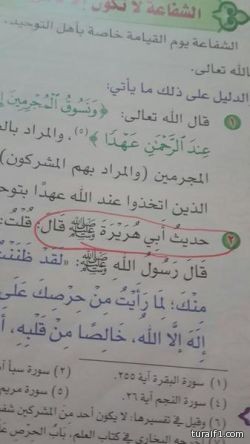 الشفاعة لا تكون إلا
الشفاعة يوم القيامة خاصة بأهل التوحيد،
الله تعالى.
الدليل على ذلك ما يأتي:
١ قال الله تعالى: ﴿وَنَسُوقُ ٱلْمُجْرِمِينَ
عِندَ ٱلرَّحْمَٰنِ عَهْدًا﴾(٥)، والمراد
المجرمين (والمراد بهم المشركون)
الذين اتخذوا عند الله عهدًا بتو
٢ حديثُ أَبِي هُرَيْرَةَ ﷺ قال: قُلْتُ:
قَالَ رَسُولُ الله ﷺ: «لَقَدْ ظَنَنْتُ
مِنْكَ؛ لِمَا رَأَيْتُ مِنْ حِرْصِكَ عَلَى
إِلَهَ إلَّا الله، خَالِصًا مِنْ قَلْبِهِ،
(١) سورة البقرة آية ٢٥٥.
(٢) سورة سبأ
(٤) سورة النجم آية ٢٦.
(٥) سورة مريم
(٦) وقيل في تفسيرها: لا يكون أحد من المشركين
البخاري في كتاب العلم، باب الحرص على
turaif1.com